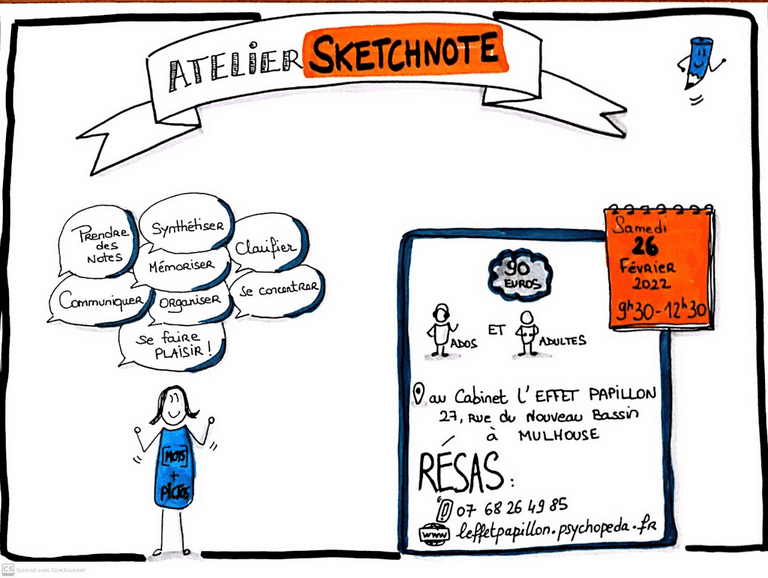 ATELIER SKETCHNOTE
Prendre
des
Notes
Synthétiser
Clarifier
Mémoriser
Communiquer
Organiser
Se concentrer
Se faire
PLAISIR !
[MOTS]
+
PICTOS
Samedi
26
Février
2022
9h30-12h30
90
EUROS
ADOS ET ADULTES
au Cabinet L'EFFET PAPILLON
27, Rue du Nouveau Bassin
à MULHOUSE
RÉSAS :
07 68 26 49 85
www leffetpapillon.psychopeda.fr
CS Scanné avec CamScanner